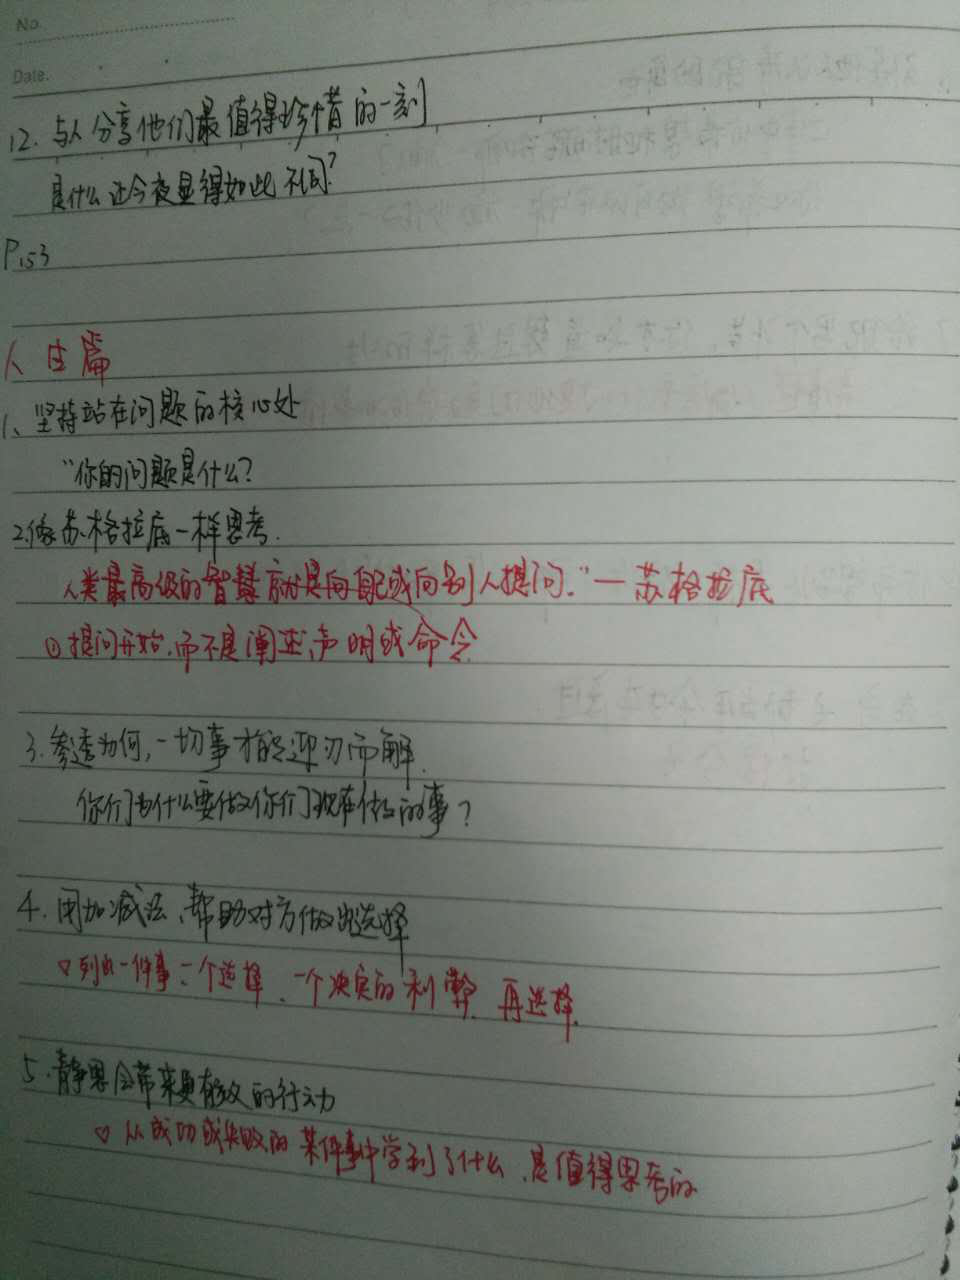 No.
Date.
12. 与人分享他们最值得珍惜的一刻
是什么让今夜显得如此不同?
P153
人生篇
1、坚持站在问题的核心处
“你的问题是什么?
2.像苏格拉底一样思考.
人类最高级的智慧就是向自己或向别人提问.”—苏格拉底
①提问开始,而不是阐述,声明或命令
3.参透为何,一切事才能迎刃而解.
你们为什么要做你们现在做的事?
4.用加减法、帮助对方做出选择
列出一件事、一个选择、一个决定的利弊,再选择.
5.静思会带来更有效的行动
从成功或失败的某件事中学到了什么,是值得思考的